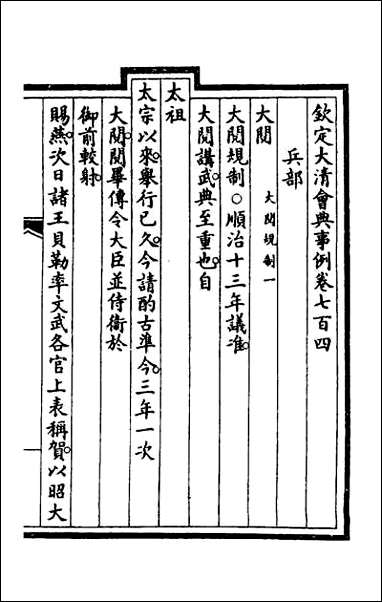 欽定大清會典事例卷七百四
兵部
大閱 大閱規制一
大閱規制○順治十三年議準
大閱講武典至重也自
太祖
太宗以來舉行已久今請酌古準今三年一次
大閱閱畢傳令大臣並侍衛於
御前較射
賜燕次日諸王貝勒率文武各官上表稱賀以昭大